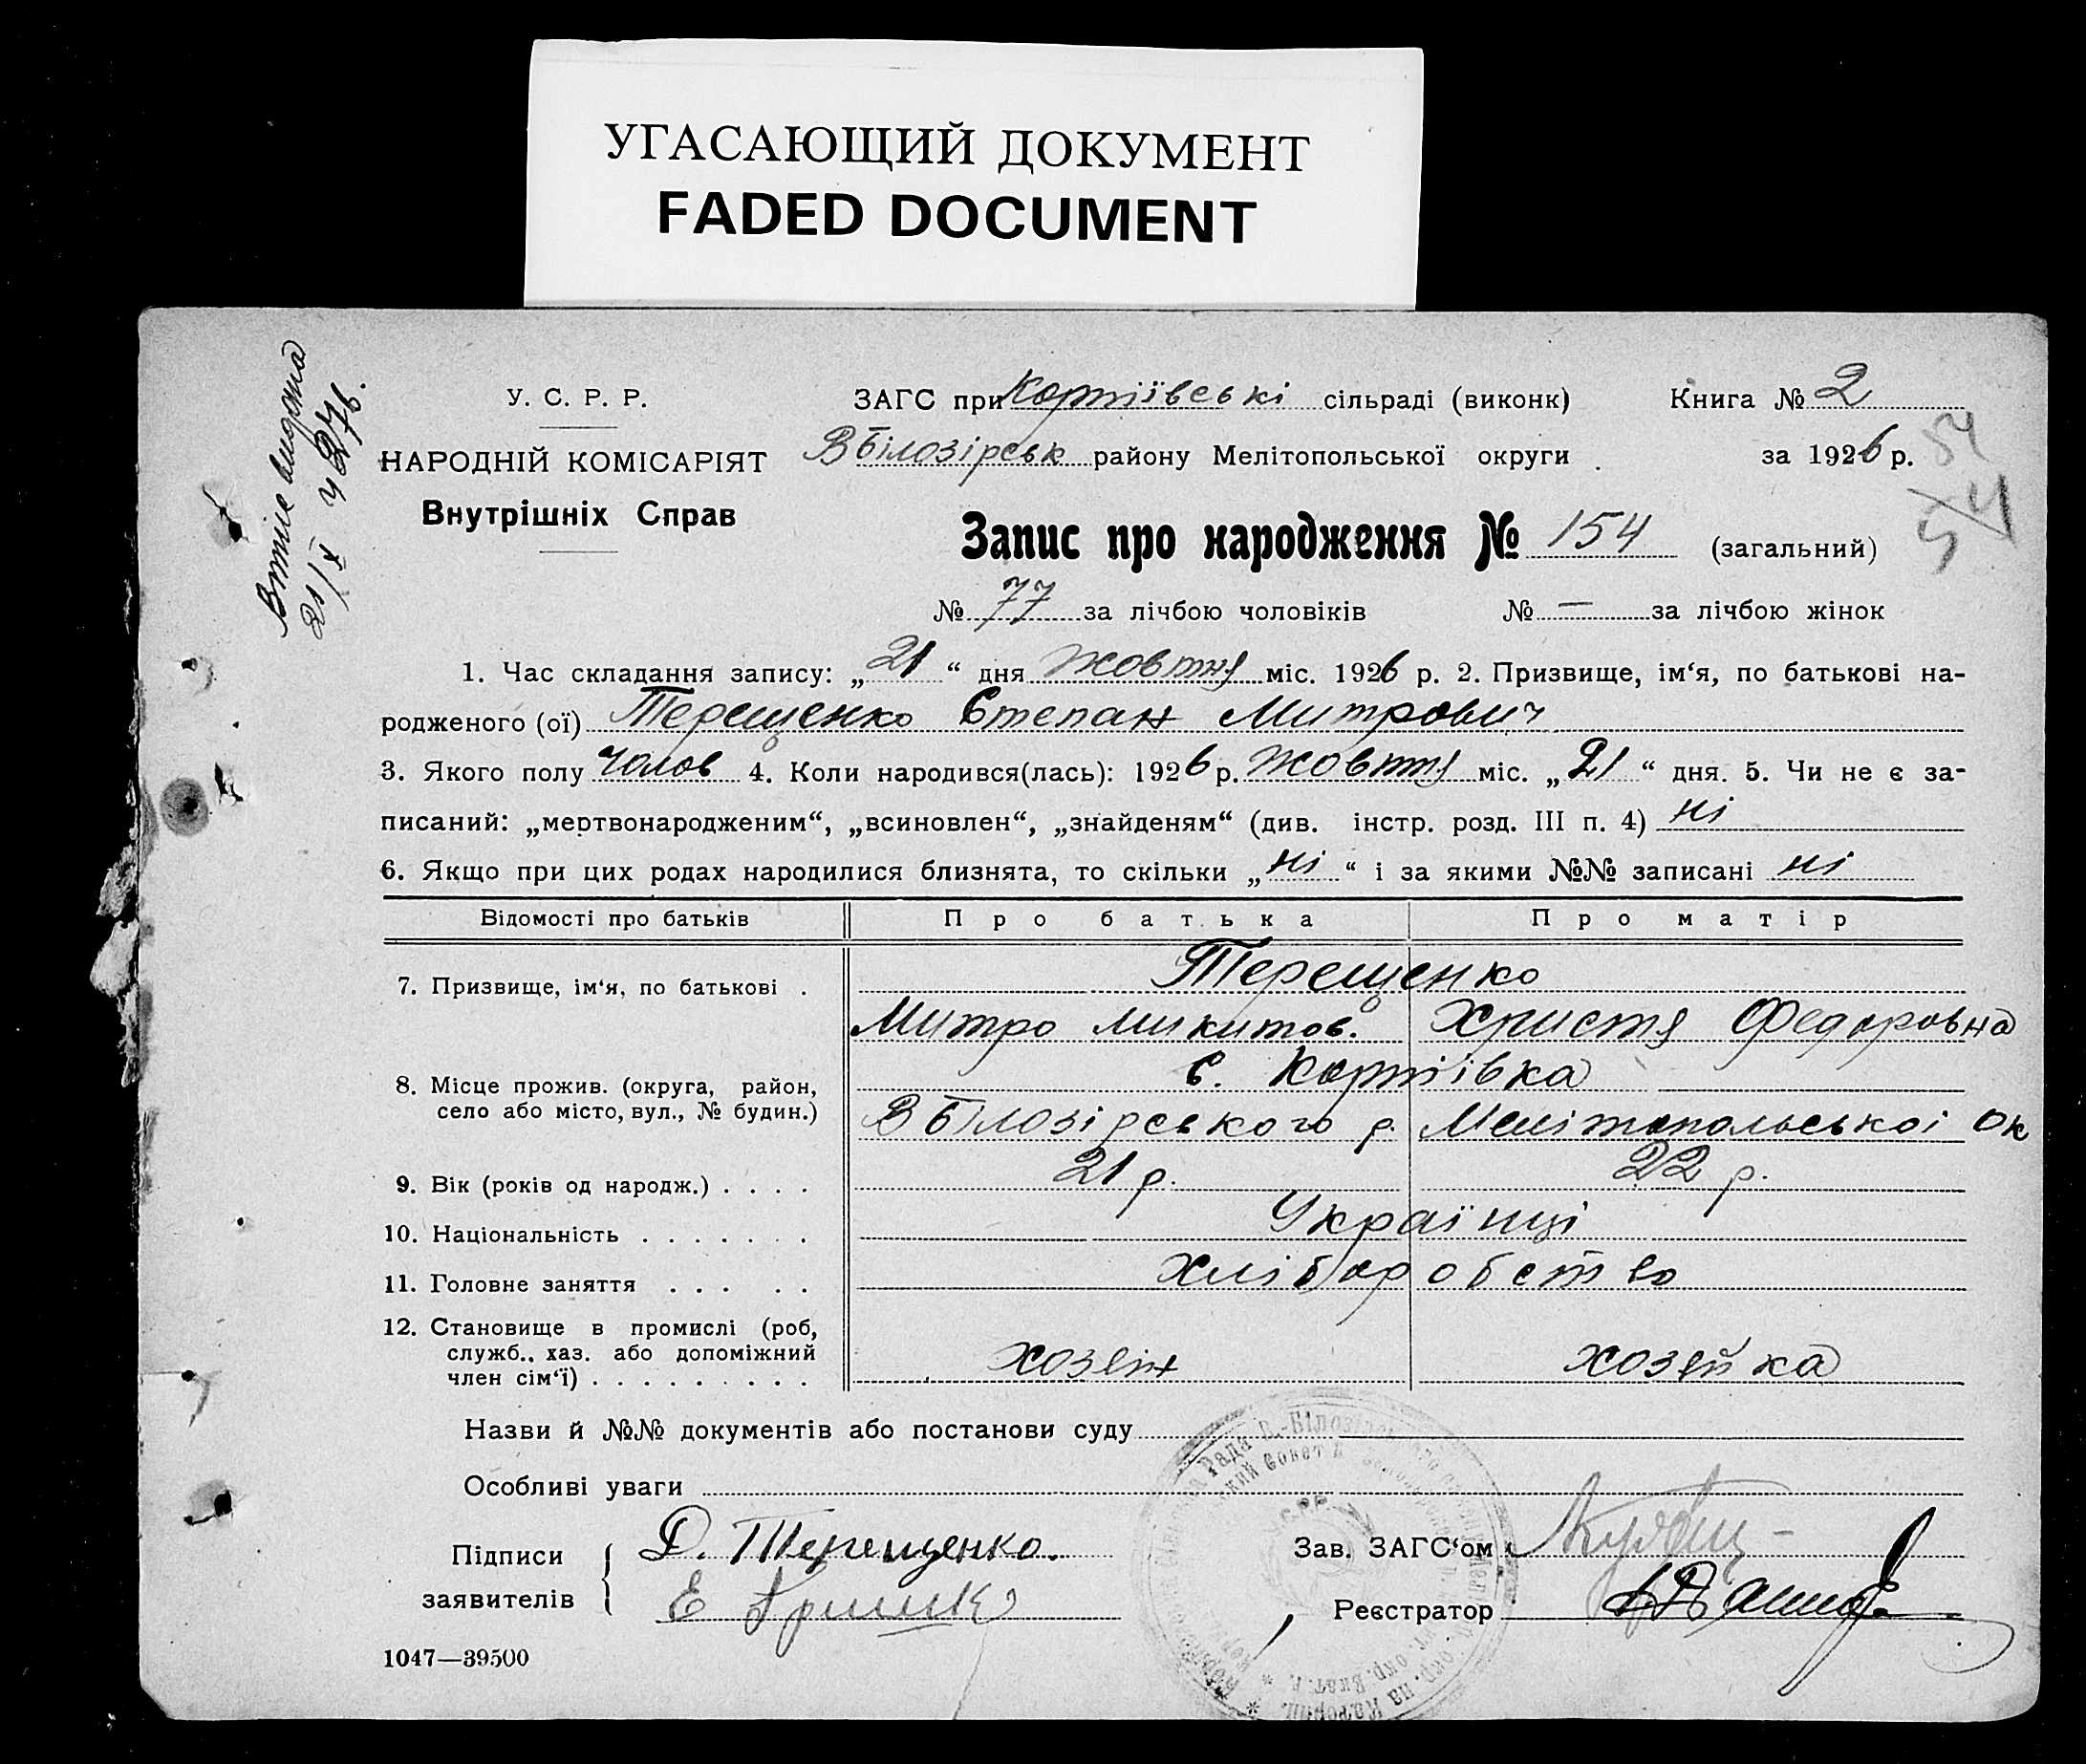 УГАСАЮЩИЙ ДОКУМЕНТ
FADED DOCUMENT
Витяг видана
21/X 26
У. С. Р. Р.
НАРОДНІЙ КОМІСАРІЯТ
Внутрішніх Справ
ЗАГС при Картіївські сільраді (виконк)
Книга № 2
ВБілозірськ району Мелітопольської округи
за 1926 р.
54
54
Запис про народження № 154 (загальний)
№ 77 за лічбою чоловіків № — за лічбою жінок
1. Час складання запису: „21“ дня жовтня міс. 1926 р. 2. Призвище, ім‘я, по батькові на-
родженого (ої) Терещенко Степан Митрович
3. Якого полу чолов 4. Коли народився(лась): 1926 р. жовтня міс. „21“ дня. 5. Чи не є за-
писаний: „мертвонародженим“, „всиновлен“, „знайденям“ (див. інстр. розд. III п. 4) ні
6. Якщо при цих родах народилися близнята, то скільки „ні“ і за якими №№ записані ні
Відомості про батьків Про батька Про матір
Терещенко
7. Призвище, ім‘я, по батькові .
Митро Микитов. Христя Федоровна
с. Картіївка
8. Місце прожив. (округа, район,
село або місто, вул., № будин.)
ВБілозірського р. Мелітопольської ок
9. Вік (років од народж.) . . . . 21 р. 22 р.
10. Національність . . . . . . . Українці
11. Головне заняття . . . . . Хліборобство
12. Становище в промислі (роб,
служб., хаз. або допоміжний
член сім‘ї) . . . . . . . . . хозяін хозяйка
Назви й №№ документів або постанови суду
Особливі уваги
Підписи
заявителів
Д. Терещенко.
Е
Зав. ЗАГС‘ом
Реєстратор
1047—39500